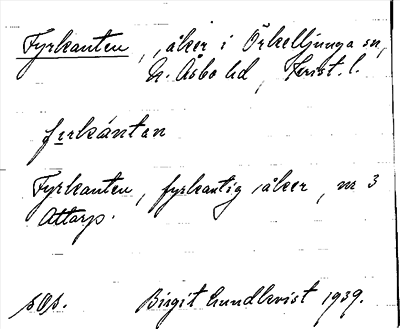 Fyrkanten, åker i Örkelljunga sn,
N. Åsbo hd, Krist. l.
firkántan
Fyrkanten, fyrkantig åker, nr 3
Attarp.
sOs. Birgit Lundkvist 1939.